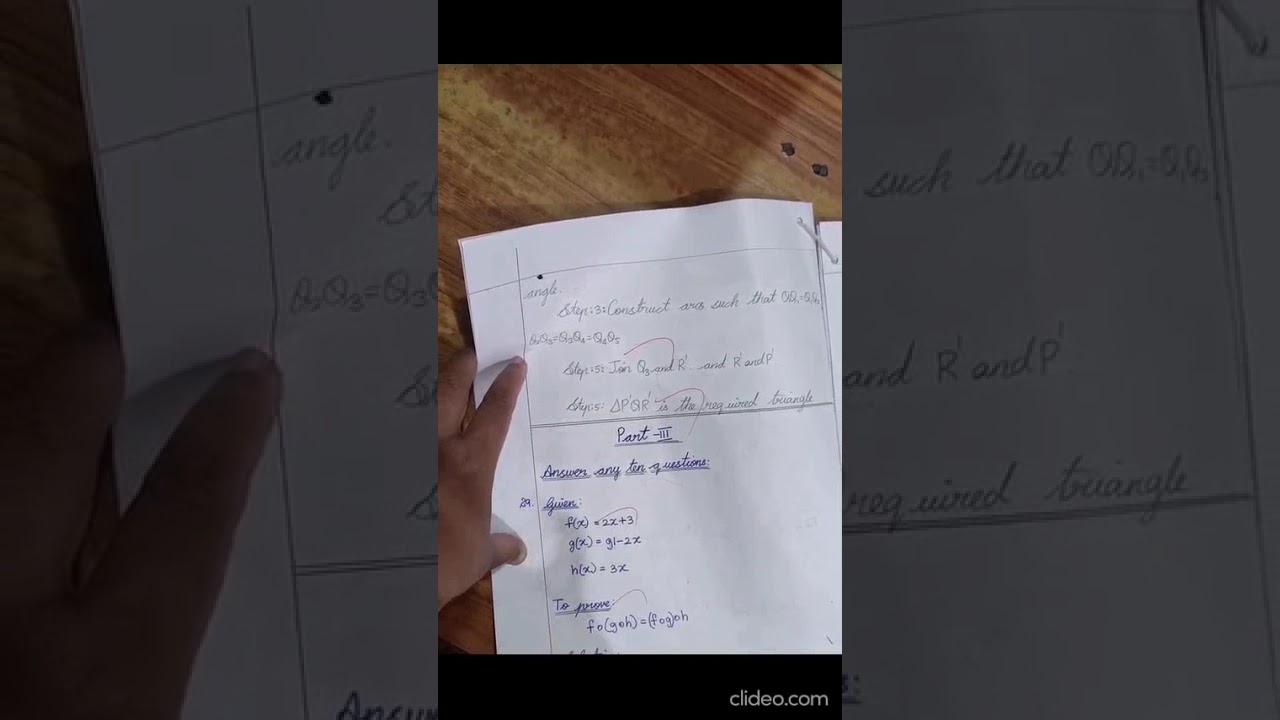 angle.
Step:3: Construct arcs such that QQ₁=Q₁Q₂
Q₂Q₃=Q₃Q₄=Q₄Q₅
Step:5: Join Q₃ and R' and R' and P'
Step:5: ΔP'QR' is the required triangle
Part-III
Answer any ten questions:
29. Given:
f(x) = 2x+3
g(x) = g1-2x
h(x) = 3x
To prove:
fo(goh) = (fog)oh
clideo.com